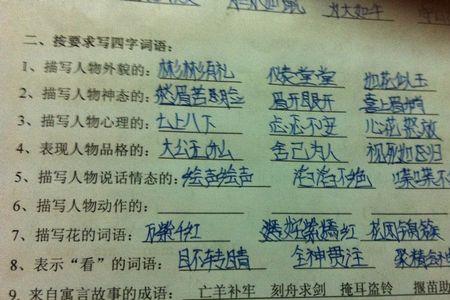 大如牛
二、按要求写四字词语:
1、描写人物外貌的: 彬彬有礼 仪表堂堂 如花似玉
2、描写人物神态的: 愁眉苦脸 眉开眼 喜上眉梢
3、描写人物心理的: 七上八下 忐忑不安 心花怒放
4、表现人物品格的: 大公无私 舍己为人 视死如归
5、描写人物说话情态的: 绘声绘声 滔滔不绝 喋喋不
6、描写人物动作的:
7、描写花的词语: 万紫千红 紫嫣红 花团锦簇
8、表示“看”的词语: 目不转睛 全神贯注 聚精会神
9. 来自寓言故事的成语: 亡羊补牢 刻舟求剑 掩耳盗铃 揠苗助